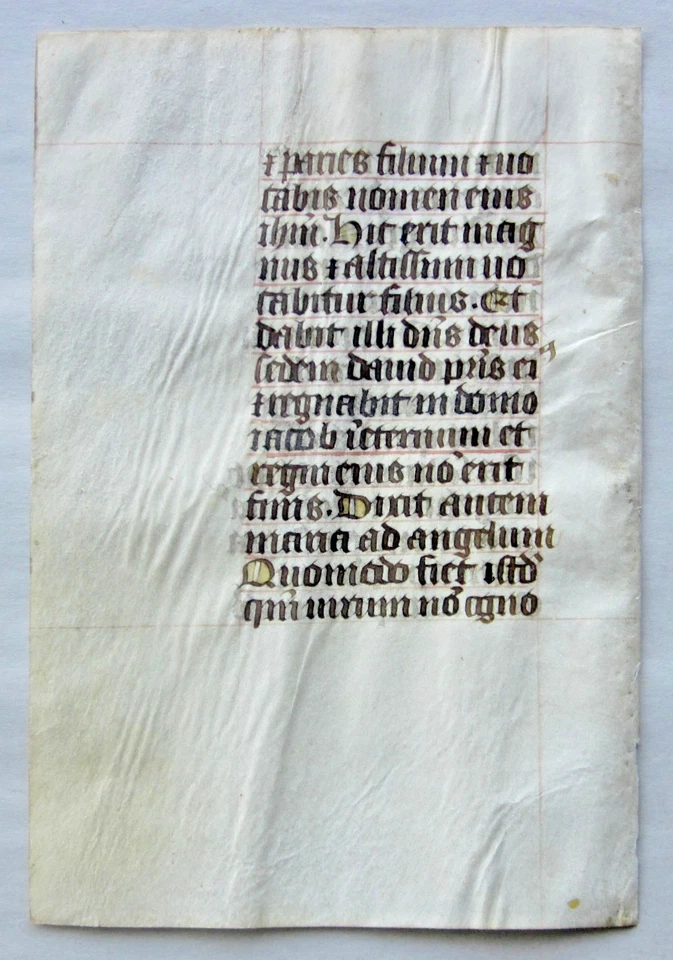 ⁊ paries filium ⁊ uo
cabis nomen eius
ihm̄. Hic erit mag
nus ⁊ altissimi uo
cabitur filius. Et
dabit illi dn̄s deus
sedem dauid pr̄is eiꝰ
⁊ regnabit in domo
iacob ī eternum et
regni eius nō erit
finis. Dixit autem
maria ad angelum
Quomodo fiet istd̄
qm̄ uirum nō cogno